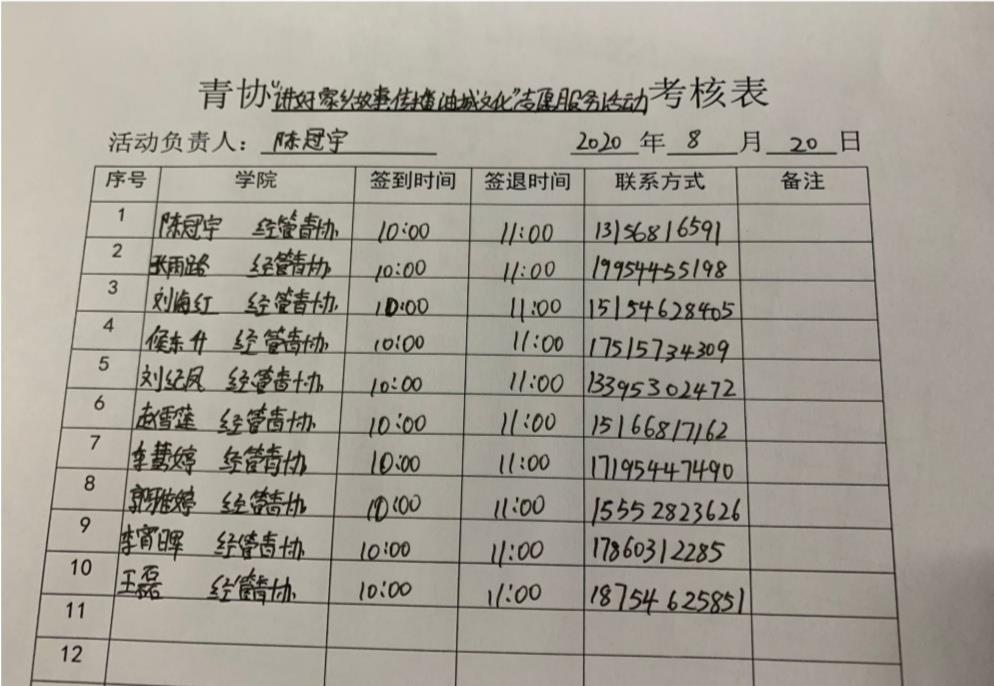 青协"讲好家乡故事传播油城文化"志愿服务活动考核表
活动负责人：陈冠宇 2020年8月20日
序号 学院 签到时间 签退时间 联系方式 备注
1 陈冠宇 经管青协 10:00 11:00 13156816591
2 张雨路 经管青协 10:00 11:00 19954455198
3 刘海红 经管青协 10:00 11:00 15154628405
4 候东升 经管青协 10:00 11:00 17515734309
5 刘纪凤 经管青协 10:00 11:00 13395302472
6 赵雪莲 经管青协 10:00 11:00 15166817162
7 李慧婷 经管青协 10:00 11:00 17195447490
8 郭雅婷 经管青协 10:00 11:00 15552823626
9 李宵晖 经管青协 10:00 11:00 17860312285
10 王磊 经管青协 10:00 11:00 18754625851
11
12